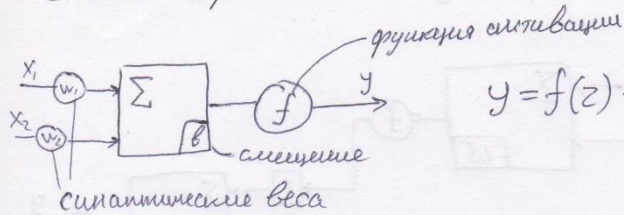 функция активации
x₁ w₁ Σ f y y = f(z)
x₂ w₂ b
смещение
синаптические веса